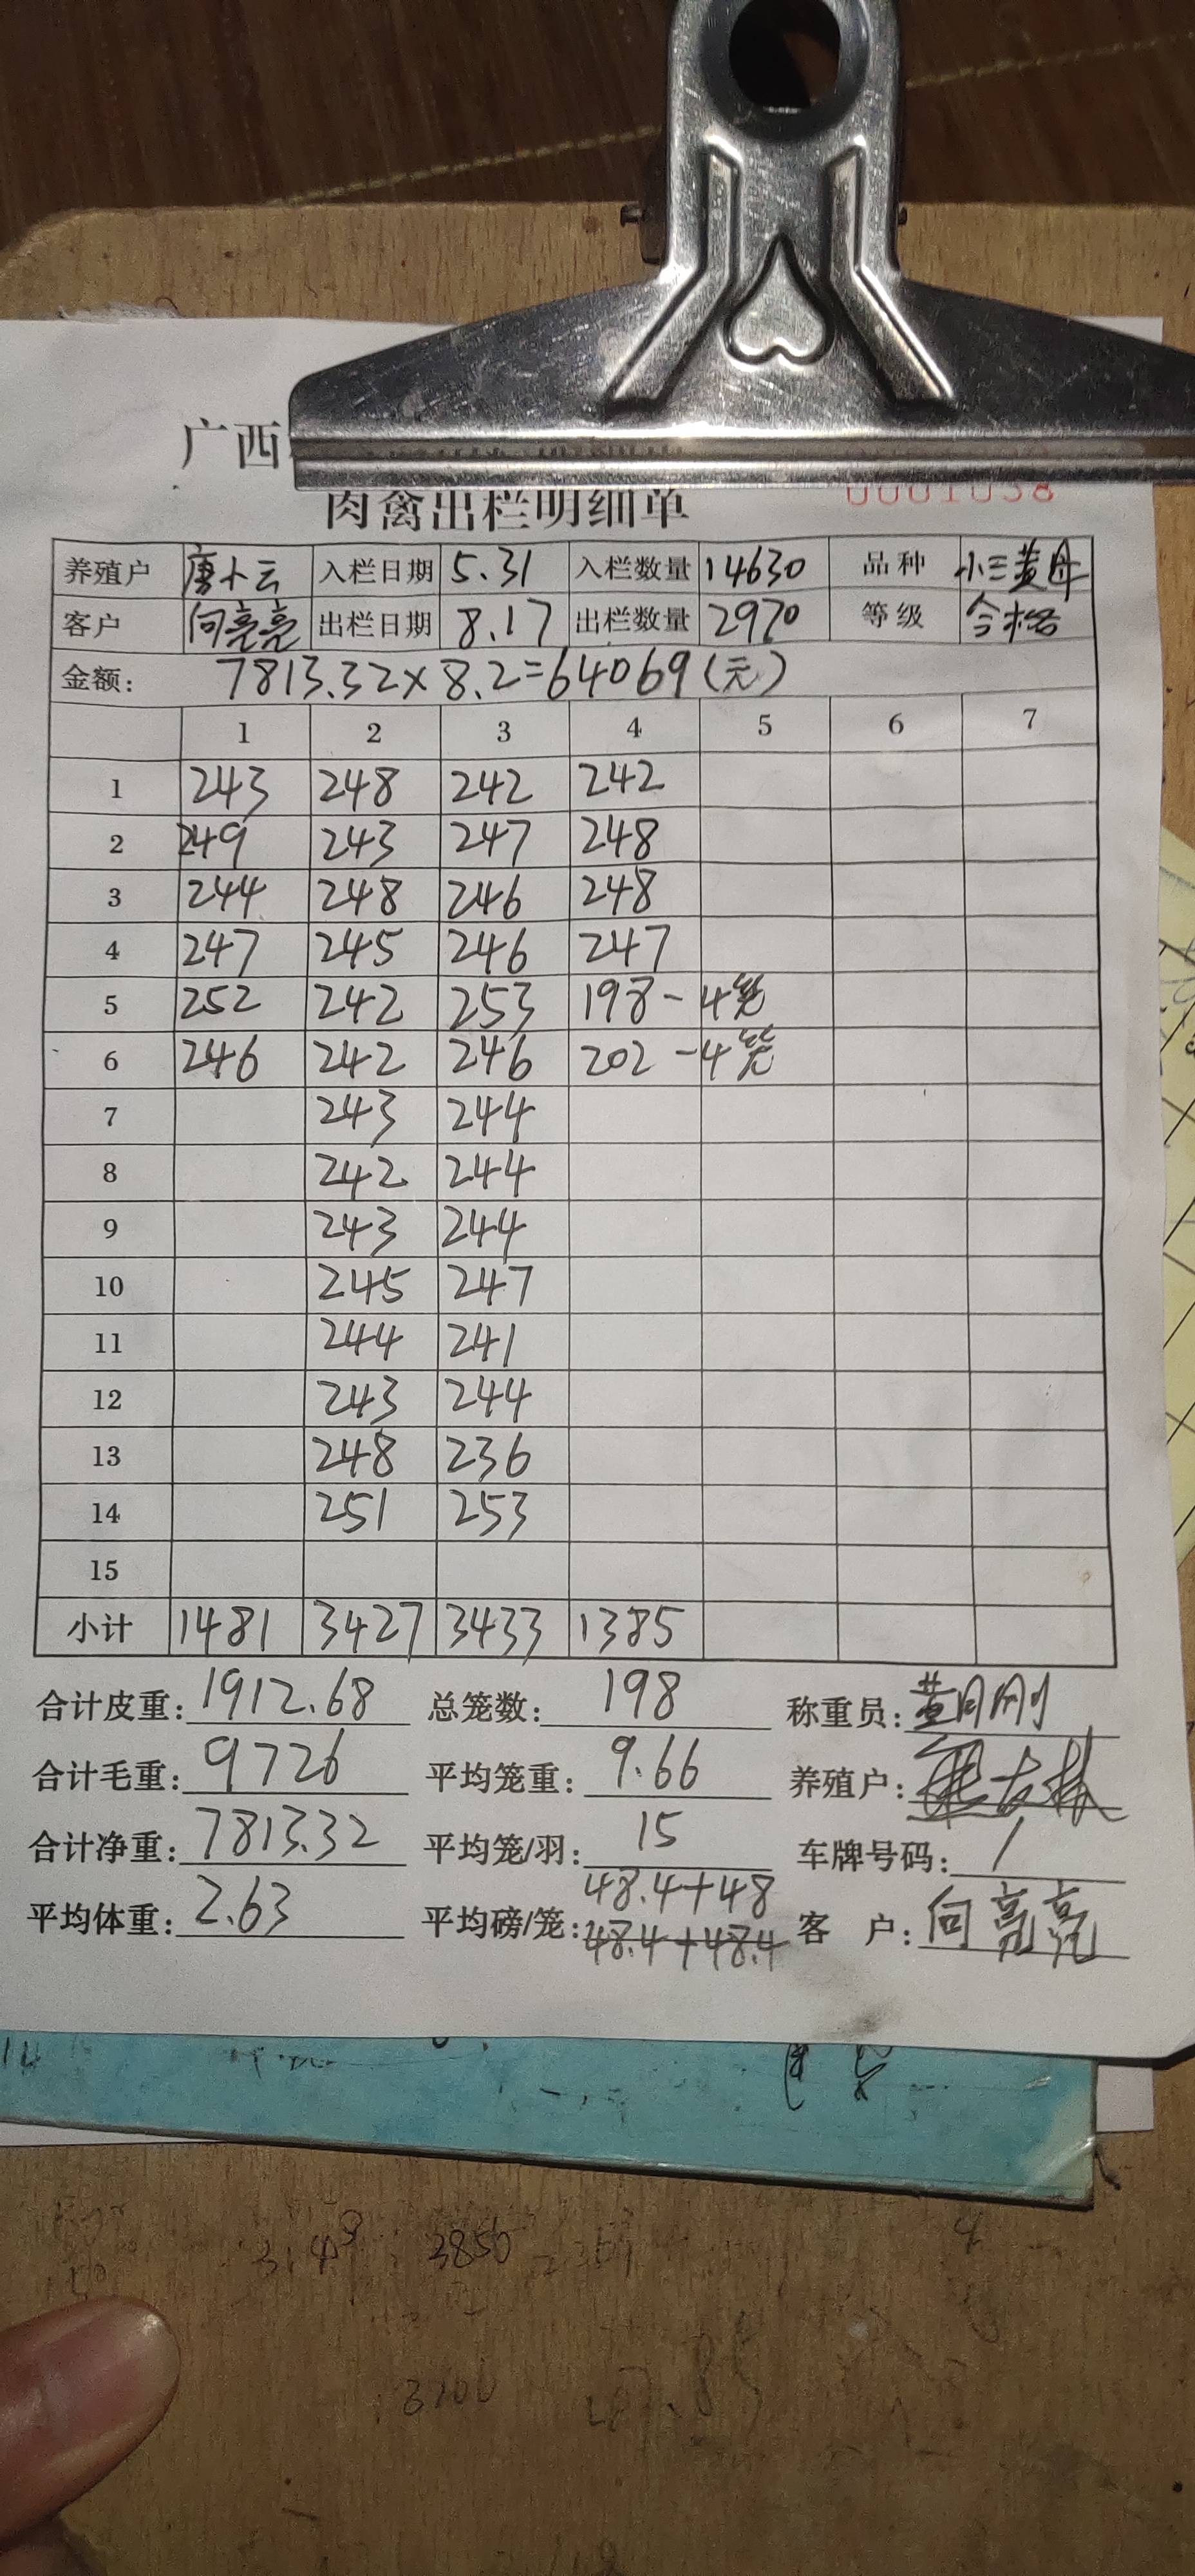 广西
肉禽出栏明细单 0001038
养殖户 唐小云 入栏日期 5.31 入栏数量 14630 品种 小三黄母
客户 向亮亮 出栏日期 8.17 出栏数量 2970 等级 合格
金额: 7813.32×8.2=64069(元)
1 2 3 4 5 6 7
1 243 248 242 242
2 249 243 247 248
3 244 248 246 248
4 247 245 246 247
5 252 242 253 198-4笼
6 246 242 246 202-4笼
7 243 244
8 242 244
9 243 244
10 245 247
11 244 241
12 243 244
13 248 236
14 251 253
15
小计 1481 3427 3433 1385
合计皮重: 1912.68 总笼数: 198 称重员: 黄
合计毛重: 9726 平均笼重: 9.66 养殖户:
合计净重: 7813.32 平均笼/羽: 15 车牌号码: /
48.4+48
平均体重: 2.63 平均磅/笼: 48.4+48.4 客 户: 向亮亮
3850